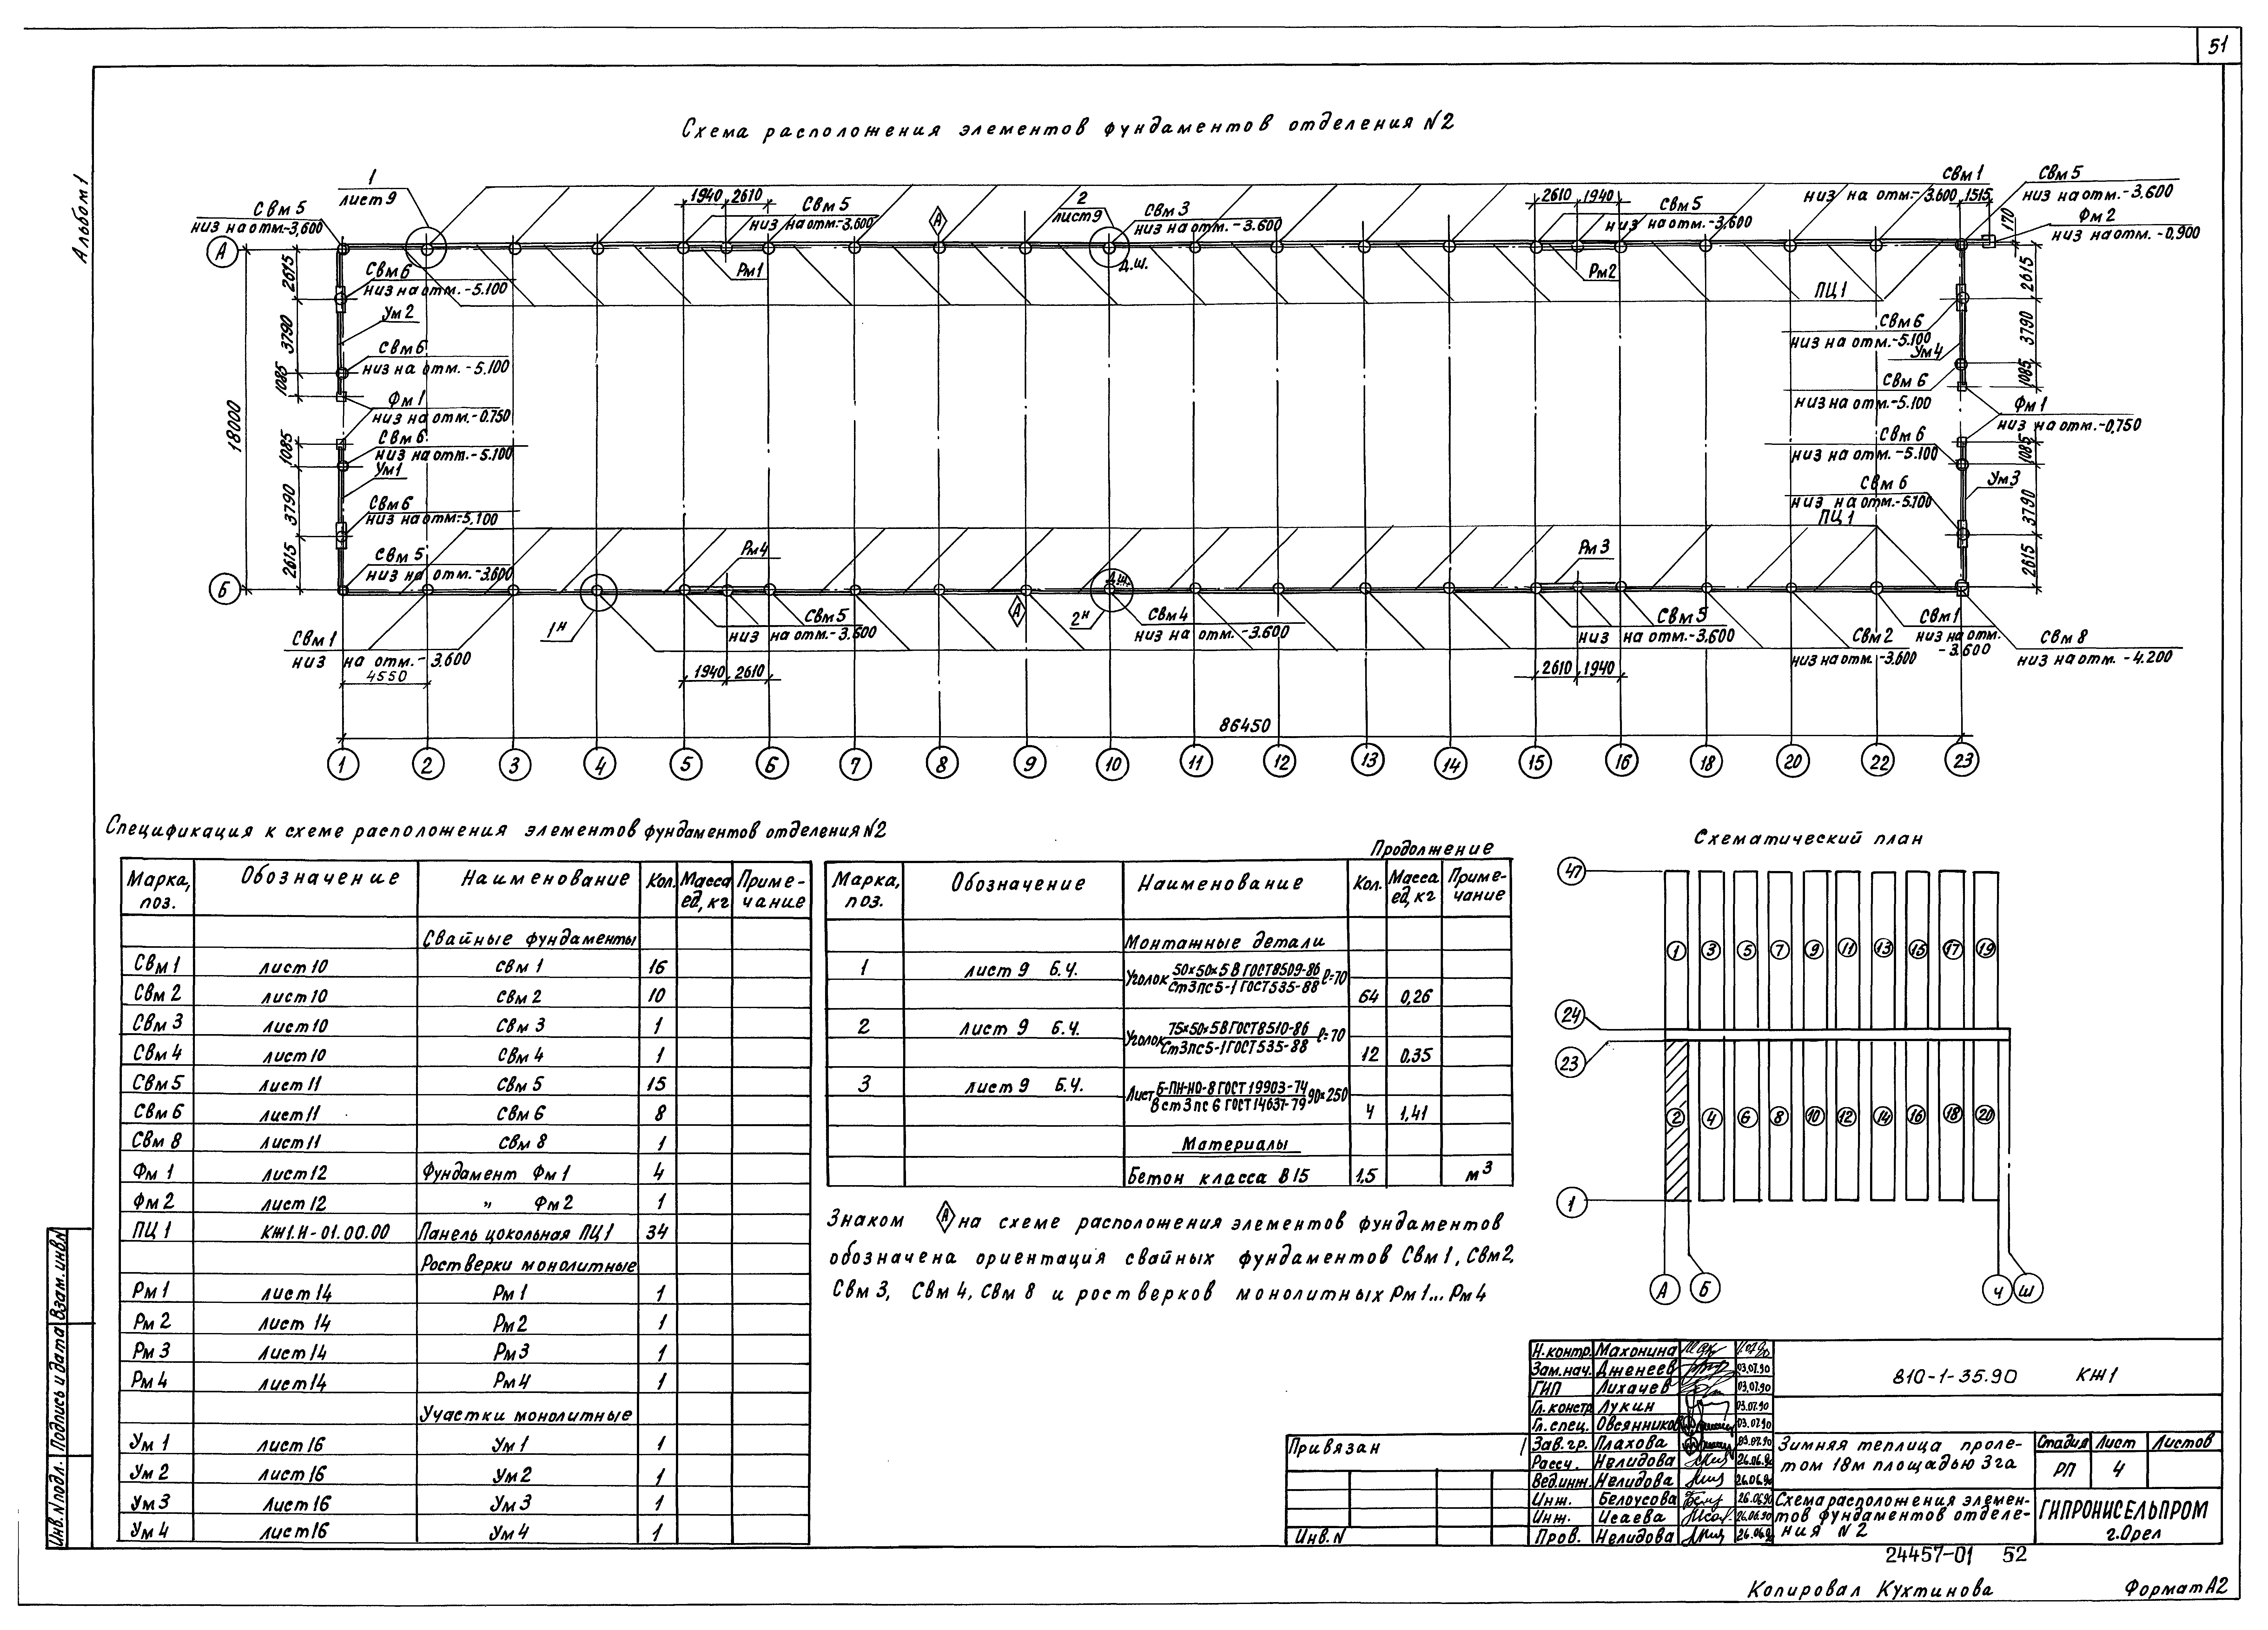 51
Альбом 1
Схема расположения элементов фундаментов отделения N2
1
лист 9
Свм 5
низ на отм.-3,600
1940 2610
Свм 5
низ на отм.-3.600
А
2
лист 9
Свм 3
низ на отм. -3.600
2610 1940
Свм 5
низ на отм.-3.600
Свм 1
низ на отм.- 3.600
1515
Свм 5
низ на отм.-3.600
170
Фм 2
низ на отм. -0,900
А
Рм1
Д.ш.
Рм2
ПЦ 1
2615
3790
1085
18000
1085
3790
2615
Свм 6
низ на отм.-5.100
Ум 2
Свм 6
низ на отм. -5.100
Фм 1
низ на отм.-0.750
Свм 6
низ на отм.-5.100
Ум1
Свм 6
низ на отм.-5,100
Свм 5
низ на отм.-3.600
Б
Свм 6
низ на отм.-5.100
Ум 4
Свм 6
низ на отм.-5.100
Фм 1
низ на отм.-0,750
Свм 6
низ на отм. -5.100
Свм 6
низ на отм.-5.100
Ум3
ПЦ 1
2615
3790
1085
1085
3790
2615
Рм4
Д.ш.
Рм 3
Свм 1
низ на отм. - 3.600
4550
1н
Свм 5
низ на отм.-3.600
1940 2610
А
2н
Свм 4
низ на отм. -3.600
Свм 5
низ на отм.-3.600
2610 1940
Свм 2
низ на отм.-3.600
Свм 1
низ на отм.
-3.600
Свм 8
низ на отм. -4.200
86450
1 2 3 4 5 6 7 8 9 10 11 12 13 14 15 16 18 20 22 23
Спецификация к схеме расположения элементов фундаментов отделения N2
Марка, поз. Обозначение Наименование Кол. Масса ед, кг Примечание
Свайные фундаменты
Свм 1 лист 10 Свм 1 16
Свм 2 лист 10 Свм 2 10
Свм 3 лист 10 Свм 3 1
Свм 4 лист 10 Свм 4 1
Свм 5 лист 11 Свм 5 15
Свм 6 лист 11 Свм 6 8
Свм 8 лист 11 Свм 8 1
Фм 1 лист 12 Фундамент Фм 1 4
Фм 2 лист 12 " Фм 2 1
ПЦ 1 КЖ1.Н-01.00.00 Панель цокольная ПЦ1 34
Ростверки монолитные
Рм 1 лист 14 Рм 1 1
Рм 2 лист 14 Рм2 1
Рм 3 лист 14 Рм3 1
Рм 4 лист 14 Рм4 1
Участки монолитные
Ум 1 лист 16 Ум 1 1
Ум 2 лист 16 Ум2 1
Ум 3 лист 16 Ум 3 1
Ум 4 лист 16 Ум 4 1
Продолжение
Марка, поз. Обозначение Наименование Кол. Масса ед, кг Примечание
Монтажные детали
1 лист 9 Б.Ч. Уголок 50×50×5 В ГОСТ8509-86 ℓ=70
Ст3пс5-1 ГОСТ535-88
64 0,26
2 лист 9 Б.Ч. Уголок 75×50×5ВГОСТ8510-86 ℓ=70
Ст3пс5-1ГОСТ535-88
12 0,35
3 лист 9 Б.Ч. Лист Б-ПН-НО-8 ГОСТ 19903-74 90×250
Вст3пс 6 ГОСТ 14637-79
4 1,41
Материалы
Бетон класса В15 1,5 м3
Знаком А на схеме расположения элементов фундаментов
обозначена ориентация свайных фундаментов Свм 1, Свм2,
Свм 3, Свм 4, Свм 8 и ростверков монолитных Рм 1... Рм 4
Схематический план
47
1 3 5 7 9 11 13 15 17 19
24
23
2 4 6 8 10 12 14 16 18 20
1
А Б Ч Ш
Привязан
Инв.N
Н.контр. Махонина
Зам.нач. Дженеев 03.07.90
ГИП Лихачев 03.07.90
Гл.констр Лукин 03.07.90
Гл.спец. Овсянников 03.07.90
Зав.гр. Плахова 03.07.90
Рассч. Нелидова 26.06.90
Вед.инж. Нелидова 26.06.90
Инж. Белоусова 26.06.90
Инж. Исаева 26.06.90
Пров. Нелидова 26.06.90
810-1-35.90 КЖ1
Зимняя теплица проле-
том 18м площадью 3га
Стадия Лист Листов
РП 4
Схема расположения элемен-
тов фундаментов отделе-
ния N2
ГИПРОНИСЕЛЬПРОМ
г.Орел
Инв.N подл. Подпись и дата Взам. инв.N
24457-01 52
Копировал Кухтинова Формат А2